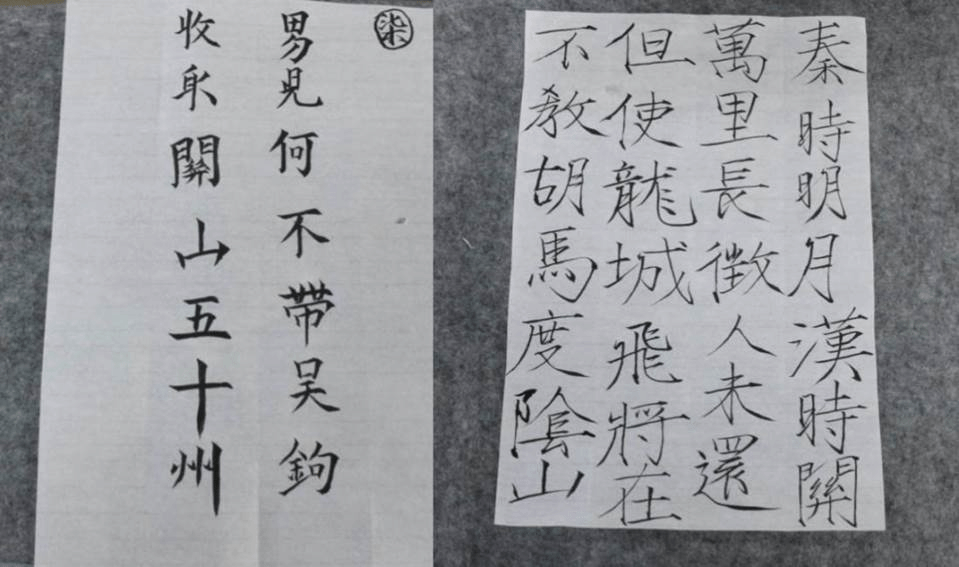 柒
男児何不帶吴鉤
收取關山五十州
秦時明月漢時關
萬里長徵人未還
但使龍城飛將在
不教胡馬度陰山